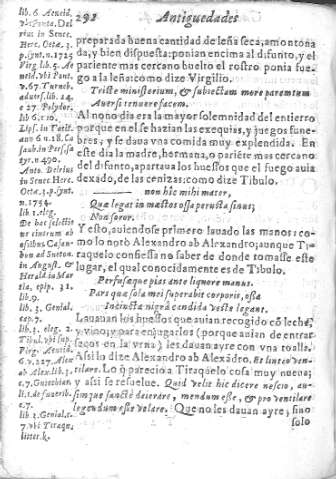 292 Antiguedades
preparada buena cantidad de leña seca, amontona
da, y bien dispuesta: ponian encima al difunto, y el
pariente mas cercano buelto el rostro ponia fue-
go a la leña: como dize Virgilio.
Triste ministerium, & subiectam more parentum
Aversi tenuere facem.
Al nono dia era la mayor solemnidad del entierro
porque en el se hazian las exequias, y juegos fune-
bres; y se daua vna comida muy explendida. En
este dia la madre, hermana, o pariẽte mas cercano
del difunto, apartaua los huessos que el fuego auia
dexado, de las cenizas: como dize Tibulo.
non hic mihi mater,
Quæ legat in mæstos ossa perusta sinus;
Non soror.
Y esto, auiendose primero lauado las manos: co-
mo lo notò Alexandro ab Alexandro; aunque Ti-
raquelo confiessa no saber de donde tomasse este
lugar, el qual conocidamente es de Tibulo.
Perfusæque pias ante liquore manus.
Pars quæ sola mei superabit corporis, ossa
Incincta nigra candida veste legant.
Lauauan los huessos que auian recogido cõ leche,
y vino; y para enjugarlos (porque auian de enterrar
los en vna vrna) les dauan ayre con vna toalla.
Assi lo dize Alexandro ab Alexãdro. Et linteo ven-
tilare. Lo q̃ parecio a Tiraquelo cosa muy nueua;
y assi se resuelue. Quid velit hic dicere nescio, au-
simque sanctè deierare, mendum esse, & pro ventilare
legendum esse velare. Que no les dauan ayre; sino
solo
lib. 6. Aeneid.
rius in Senec.
Herc. Octæ. 3.
Virg. lib. 4. Ae-
neid. vbi Pont.
v. 67. Turneb.
aduers. lib. 24.
c 27. Polydor.
lib 6. c. 10.
Lips. in Tacit.
n. 490.
Aut. Delrius
in Senec. Herc.
n. 1794.
lib. 1. eleg.
De hac selectio
ne cinerum ab
ossibus Casau-
bon ad Sueton.
in August. &
Herald. in Mar
tia, epig. 31.
lib. 9.
lib. 3. Genial.
cap. 7.
lib. 3. eleg. 2.
Tibul. vbi sup.
Virg. Aeneid.
6. v. 227. Alex
ab Alex. lib. 3.
c. 7. Guichian
li. 1. de funerib.
c. 7.
lib. 3. Genial. c.
7. vbi Tiraqu.
litter. k.